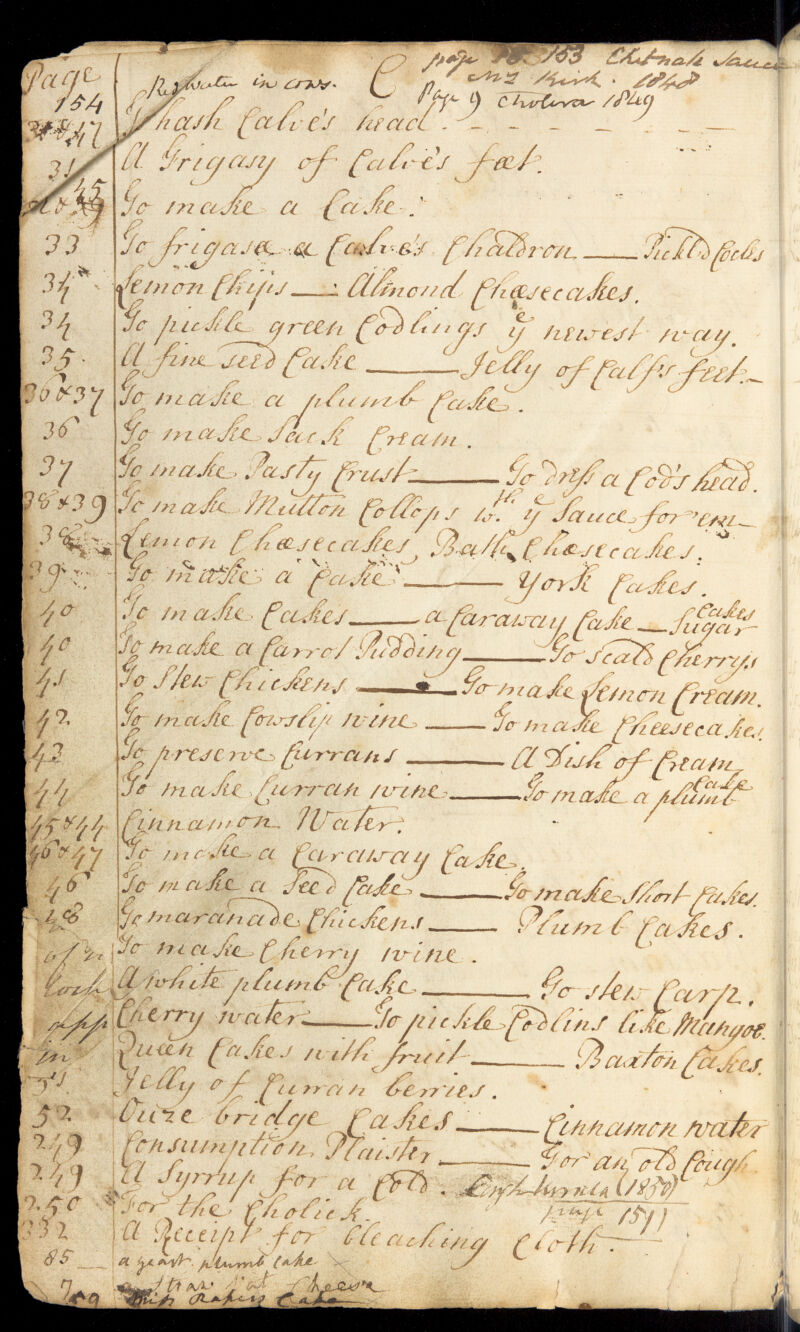 Page C page 153 Chetnah Sauce
154 Redwater in cows. Mrs Kirk. 1848
Page 9 Cholera 1849
47 To hash Calve's head.
31 A Frigasy of Calve's fœt.
45 To make a Cake.
33 To frigasa a Calve's Chaldron — Pickl'd Cocks
34 Lemon Chips — Almond Chæsecakes.
34 To pickle green Codlings ye newest way.
35. A fine seed Cake — Jelly of Calf's feet.
36 & 37 To make a plumb Cake.
36 To make Sack Cream.
37 To make Pasty Crust — To dress a Cod's head.
38 & 39 To make Mutton Collops wth ye Sauce for 'em
38 Lemon Chæsecakes, Bath Chæsecakes.
39 To make a Cake — York Cakes.
40 To make Cakes — a Caraway Cake — Sugar Cakes
40 To make a Carrot Pudding — To scald Cherrys
41 To stew Chickens — To make Lemon Cream.
42 To make Cowslip wine — To make Cheesecakes.
43 To preserve Currans — A Dish of Cream
44 To make Curran wine — To make a plumb Cake
45 & 44 Cinnamon Water.
46 & 47 To make a Caraway Cake.
46 To make a Seed Cake — To make short Cakes.
48 To maranade Chickens — Plumb Cakes.
To make Cherry wine.
A white plumb Cake — To stew Carp.
Cherry water — To pickle Codlins like Mangoe.
in Queen Cakes with fruit — Baxton Cakes.
51 Jelly of Curran berries.
52 Ouze bridge Cakes — Cinnamon water
249 Consumption Plaister — For an old Cough
249 A Syrrup for a Cold. (1850)
250 For the Cholick page 151
332 A Receipt for bleaching Cloth.
85 a yeast plumb cake
Cheese
Cake